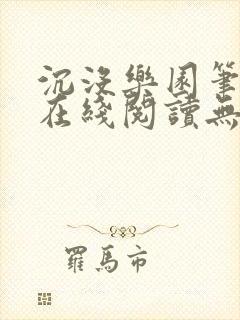 沉沒樂園筆
在綫閱讀無
羅馬市